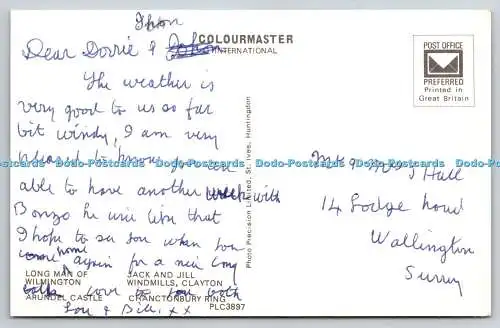 Ihon
Dear Dorrie &
COLOURMASTER
INTERNATIONAL
The weather is
very good to us so far
bit windy, I am very
pleased to know you are
able to have another week with
Bonzo he will like that
I hope to see you when you
come home again for a nice long
talk love to you both
Lou & Bill, x x
LONG MAN OF
WILMINGTON
JACK AND JILL
WINDMILLS, CLAYTON
ARUNDEL CASTLE
CHANCTONBURY RING
PLC3897
Photo Precision Limited, St. Ives, Huntingdon
POST OFFICE
PREFERRED
Printed in
Great Britain
Mr & Mrs J Hall
14 Lodge road
Wallington
Surrey
Dodo-Postcards Dodo-Postcards Dodo-Postcards Dodo-Postcards Dodo-Postcards Dodo-Postcards